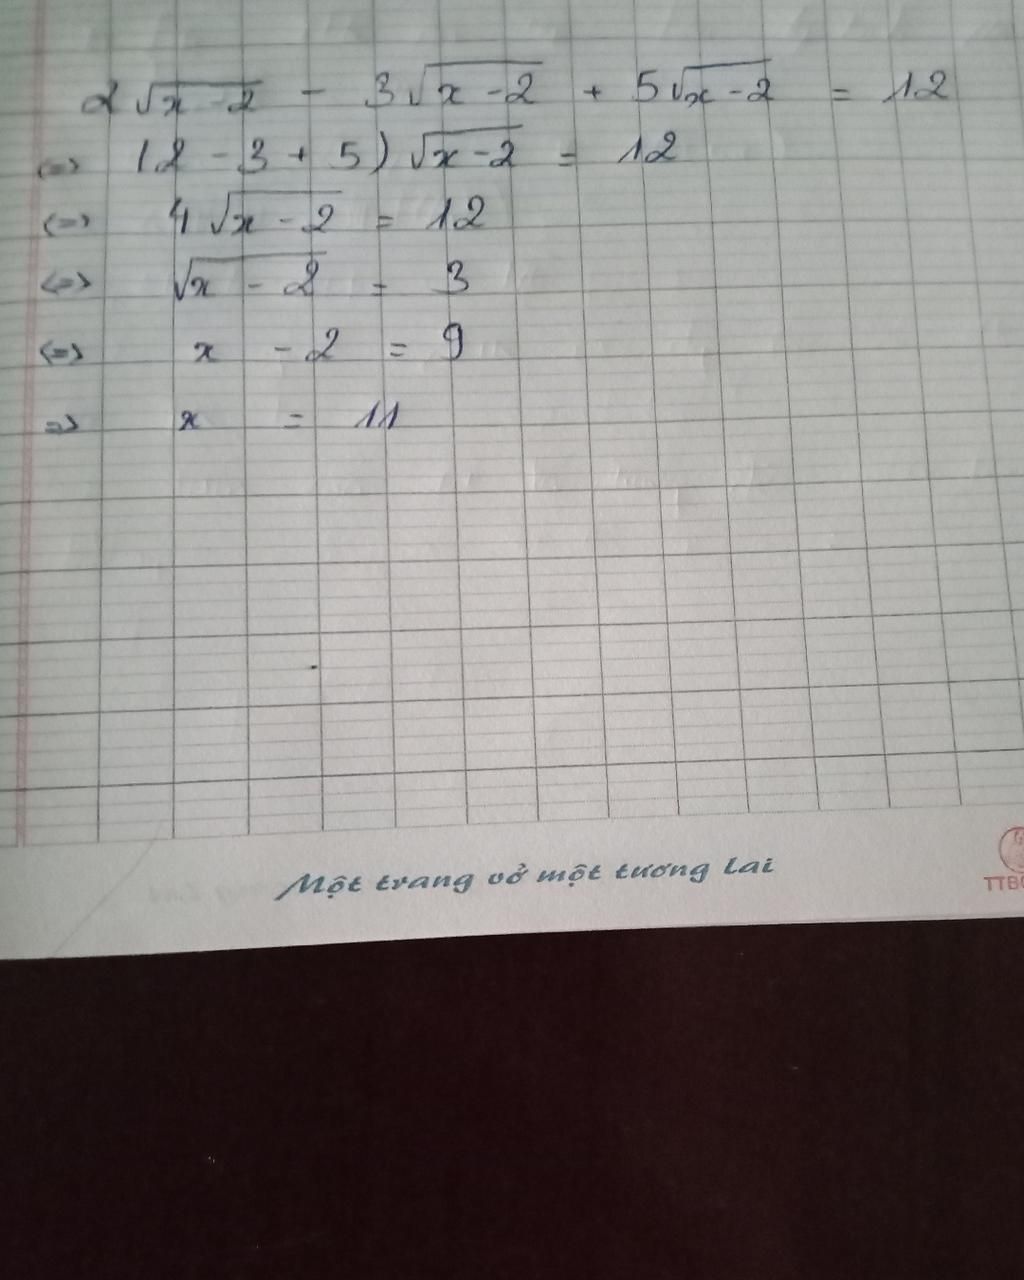 2√x-2 - 3√x-2 + 5√x-2 = 12
<=> (2 - 3 + 5)√x-2 = 12
<=> 4√x-2 = 12
<=> √x-2 = 3
<=> x - 2 = 9
=> x = 11
Một trang vở một tương lai